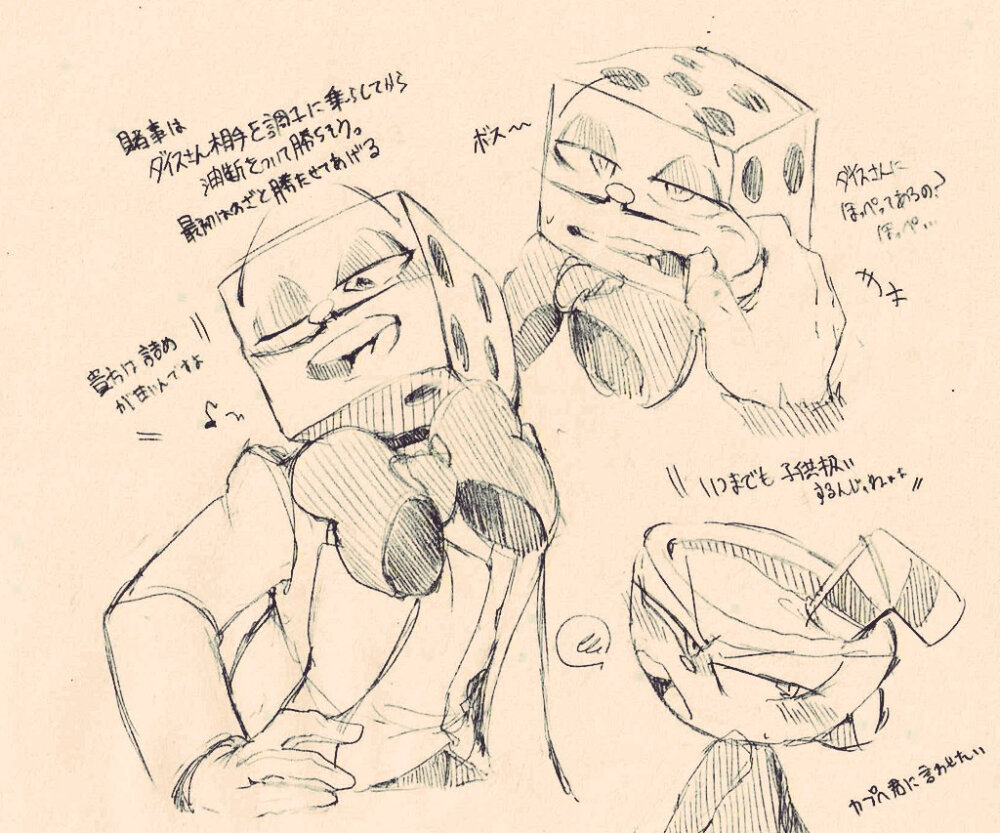 賭事は
ダイスさん相手を調子に乗らしてから
油断をついて勝ちそう。
最初はわざと勝たせてあげる
貴方は詰め
が甘いんですよ
ボス〜〜
ダイスさんに
ほっぺってあるの?
ほっぺ…
いつまでも子供扱い
するんじゃねェよ
カプヘ君に言わせたい